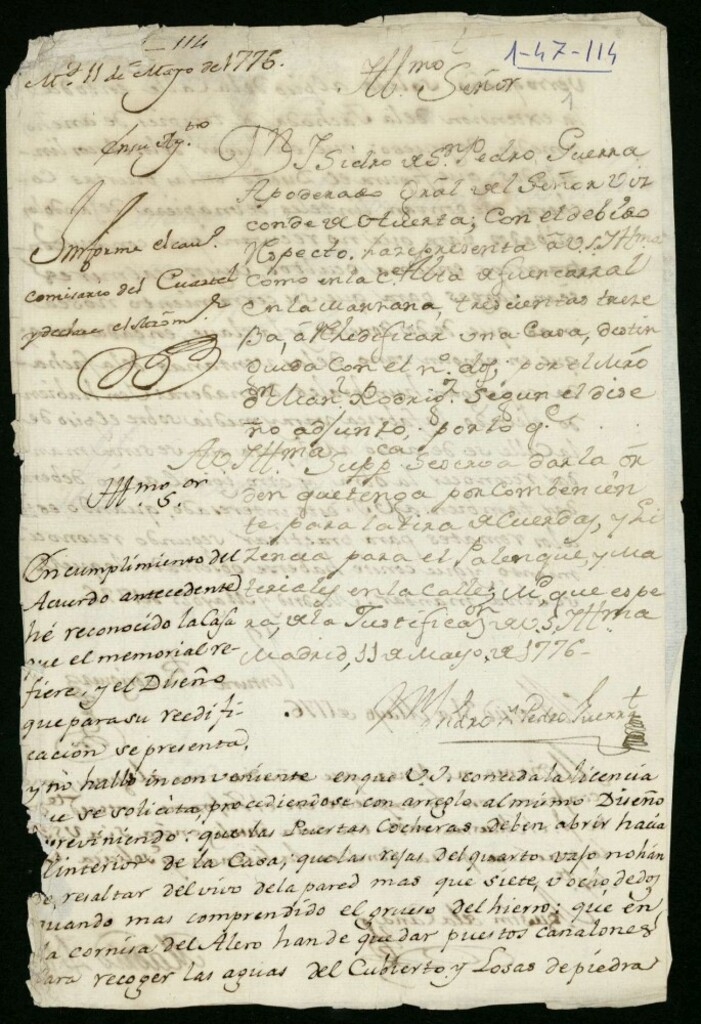 114
1-47-114
Md. 11 de Mayo de 1776.
Illmo Señor
En su Ay.to
Informe el cav.o
comisario del Cuartel
y
Dn Isidro de Sn Pedro Guerra
Apoderado Gral del Señor Viz
conde de Huerta; Con el debido
Respecto. representa â V.S. Illma
como en la ce Alta de Fuencarral
en la Manzana, trescientas trece
ba, â Rhedificar una Casa, distin
guida Con el no. dos, por el Mro
Dn Man.l Rodrig.z Segun el dise
ño adjunto, por lo q.e
A V.S. Illma Supp.ca Se sirva dar la ór
den que tenga por Combenien
te para la tira de Cuerdas, y Li
zencia para el Palenque, y Ma
teriales en la Calle; Md. que espe
ra, de la Justificaon de V.S. Illma
Madrid, 11 de Mayo, de 1776-
Isidro Sn Pedro Guerra
Illmo Sor
En cumplimiento del
Acuerdo antecedente
hé reconocido la Casa
que el memorial re-
fiere, y el Diseño
que para su reedifi-
cación se presenta,
y no hallo inconveniente en que V.S. conceda la licencia
que se solicita, procediendose con arreglo al mismo Diseño
previniendo: que las Puertas Cocheras deben abrir hacia
l interior de la Casa; que las rejas del quarto vajo no hán
de resaltar del vivo de la pared mas que siete, u ocho dedos
quando mas comprendido el grueso del hierro; que en
la cornisa del Alero han de quedar puestos canalones
para recoger las aguas del Cubierto, y Losas de piedra